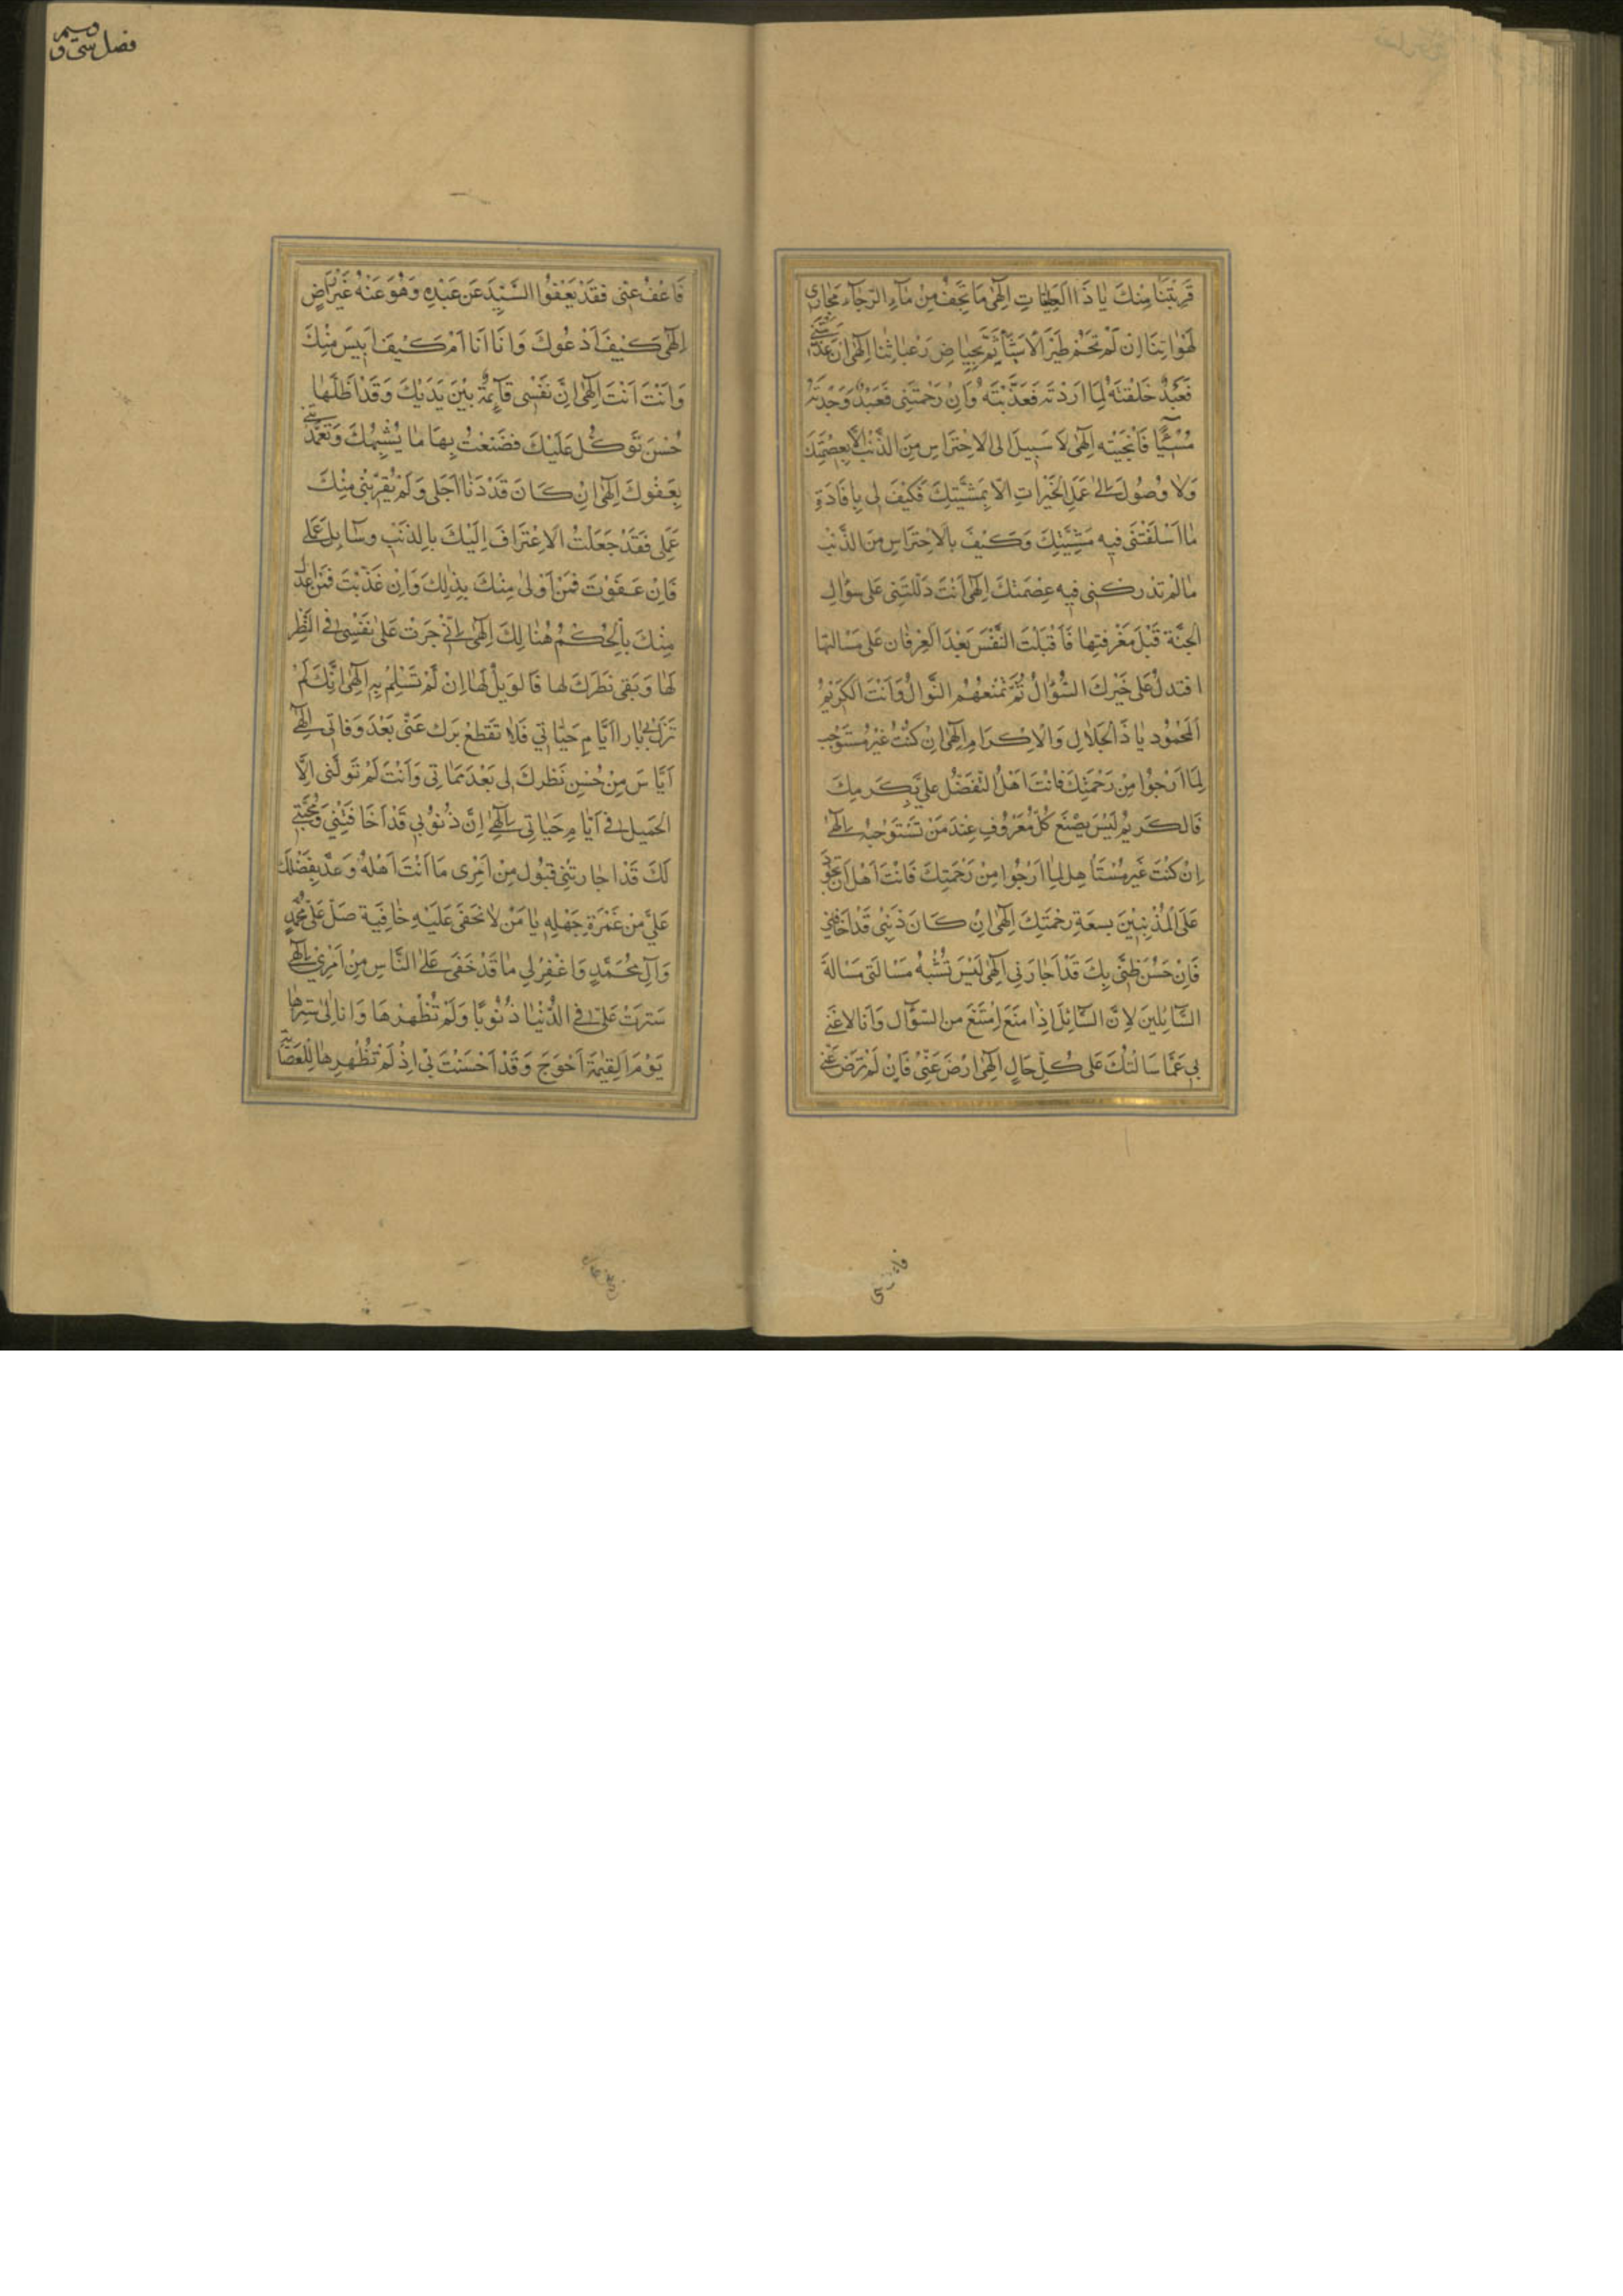 قَرَّبْتَنَا مِنْكَ يَا ذَا الْعَطِيَّاتِ اِلٰهِى مَا تَجِفُّ مِنْ مَاءِ الرَّجَاءِ مَجَارِى
لَهَوَاتِنَا اِنْ لَمْ تَحُمْ طَيْرُ الْاَشَائِمِ بِحِيَاضِ رَغَبَاتِنَا اِلٰهِى اِنْ عَذَّبْتَنِى
فَعَبْدٌ خَلَقْتَهُ لِمَا اَرَدْتَهُ فَعَذَّبْتَهُ وَاِنْ رَحْمَتِنِى فَعَبْدٌ وَجَدْتَهُ
مُسِيْئًا فَاَنْجَيْتَهِ اِلٰهِى لَا سَبِيلَ اِلى الْاِحْتِرَاسِ مِنَ الذَّنْبِ اِلَّا بِعِصْمَتِكَ
وَلَا وُصُولَ اِلىٰ عَمَلِ الْخَيْرَاتِ اِلَّا بِمَشِيَّتِكَ فَكَيْفَ لِى بِاِفَادَةِ
مَا اَسْلَفْتَنِى فِيهِ مَشِيَّتِكَ وَكَيْفَ بِالْاِحْتِرَاسِ مِنَ الذَّنْبِ
مَا لَمْ تَدْرِكْنِى فِيهِ عِصْمَتُكَ اِلٰهِى اَنْتَ دَلَلْتَنِى عَلى سُؤَالِ
الْجَنَّةِ قَبْلَ مَعْرِفَتِهَا فَاَقْبَلَتِ النَّفْسَ بَعْدَ الْعِرْفَانِ عَلى مَسْاَلَتِهَا
افتدلُّ عَلى خَيْرِكَ السُّؤَالُ ثُمَّ تَمْنَعُهُمُ النَّوَالُ وَاَنْتَ الْكَرِيْمُ
الْمَحْمُود يَا ذَا الْجَلَالِ وَالْاِكْرَامِ اِلٰهِى اِنْ كُنْتُ غَيْرُ مُسْتَوْجِبٍ
لِمَا اَرْجُوا مِنْ رَحْمَتِكَ فَاَنْتَ اَهْلُ التَّفَضُّلِ عَلَىَّ بِكَرَمِكَ
فَالْكَرِيْمُ لَيْسَ يَصْنَعُ كُلَّ مَعْرُوفٍ عِنْدَ مَنْ تَسْتَوْجِبُهُ اِلٰهِى
اِنْ كُنْتُ غَيْرَ مُسْتَاْهِلٍ لِمَا اَرْجُوا مِنْ رَحْمَتِكَ فَاَنْتَ اَهْلٌ اَنْ تَجُوْدَ
عَلَى الْمُذْنِبِيْنَ بِسِعَةِ رَحْمَتِكَ اِلٰهِى اِنْ كَانَ ذَنْبِى قَدْ اَخَافَنِى
فَاِنَّ حُسْنَ ظَنِّى بِكَ قَدْ اَجَارَنِى اِلٰهِى لَيْسَ تُشْبِهُ مَسْاَلَتِى مَسْاَلَةَ
السَّائِلِينَ لِاَنَّ السَّائِلَ اِذَا مُنِعَ اِمْتَنَعَ مِنَ السُّؤَالِ وَاَنَا لَا غِنَى
بِى عَمَّا سَاَلْتُكَ عَلى كُلِّ حَالٍ اِلٰهِى ارْضَ عَنِّىْ فَاِنْ لَمْ تَرْضَ عَنِّى
فاعف عنى
فصل سى و سيم
فَاعْفُ عَنِّى فَقَدْ يَعْفُوا السَّيِّدُ عَنْ عَبْدِهِ وَهُوَ عَنْهُ غَيْرُ رَاضٍ
اِلٰهِى كَيْفَ اَدْعُوكَ وَاَنَا اَنَا اَمْ كَيْفَ اَيِسَ مِنْكَ
وَاَنْتَ اَنْتَ اِلٰهِى اِنَّ نَفْسِى قَائِمَةٌ بَيْنَ يَدَيْكَ وَقَدْ اَظَلَّهَا
حُسْنَ تَوَكُّل عَلَيْكَ فَصَنَعْتَ بِهَا مَا يُشْبِهُكَ وَتَغَمَّدْتَنِى
بِعَفْوِكَ اِلٰهِى اِنْ كَانَ قَدْ دَنَا اَجَلِى وَلَمْ يُقَرِّبْنِى مِنْكَ
عَمَلِى فَقَدْ جَعَلْتُ الْاِعْتِرَافَ اِلَيْكَ بِالذَّنْبِ وَسَائِلَ عَمَلِى
فَاِنْ عَفَوْتَ فَمَنْ اَوْلى مِنْكَ بِذٰلِكَ وَاِنْ عَذَّبْتَ فَمَنْ اَعْدَلُ
مِنْكَ بِالْحُكْمِ هُنَالِكَ اِلٰهِى اِنِّى جُرْتُ عَلى نَفْسِى فِى النَّظَرِ
لَهَا وَبَقِى نَظَرُكَ لَهَا فَالْوَيْلُ لَهَا اِنْ لَمْ تَسْلَمْ بِهِ اِلٰهِى اِنَّكَ لَمْ
تَزَلْ بِى بَارًّا اَيَّامَ حَيَاتِى فَلَا تَقْطَعْ بِرَّكَ عَنِّى بَعْدَ وَفَاتِى اِلٰهِى
اَيْاَسُ مِنْ حُسْنِ نَظَرِكَ لِى بَعْدَ مَمَاتِى وَاَنْتَ لَمْ تَوَلَّنِى اِلَّا
الْجَمِيْلَ فِى اَيَّامِ حَيَاتِى اِلٰهِى اِنَّ ذُنُوْبِى قَدْ اَخَافَتْنِىْ وَمَحَبَّتِى
لَكَ قَدْ اَجَارَتْنِى قبول مِنْ اَمْرِى مَا اَنْتَ اَهْلُهُ وَعُدْ بِفَضْلِكَ
عَلَىَّ مِنْ غَمْرَةِ جَهْلِهِ يَا مَنْ لَا تَخْفَى عَلَيْهِ خَافِيَة صَلِّ عَلى مُحَمَّدٍ
وَآلِ مُحَمَّدٍ وَاغْفِرْلِى مَا قَدْ خَفَى عَلَى النَّاسِ مِنْ اَمْرِىْ اِلٰهِى
سَتَرْتَ عَلَىَّ فِى الدُّنْيَا ذُنُوْبًا وَلَمْ تُظْهِرْهَا وَاَنَا اِلى سَتْرِهَا
يَوْمَ الْقِيٰمَةِ اَحْوَجَ وَقَدْ اَحْسَنْتَ بِىْ اِذْ لَمْ تُظْهِرهَا لِلْعِصَابَةِ